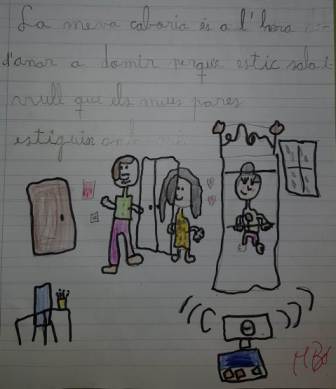 La meva cabòria és a l'hora
d'anar a domir perque estic sola i
vull que els meus pares
estiguin amb mi